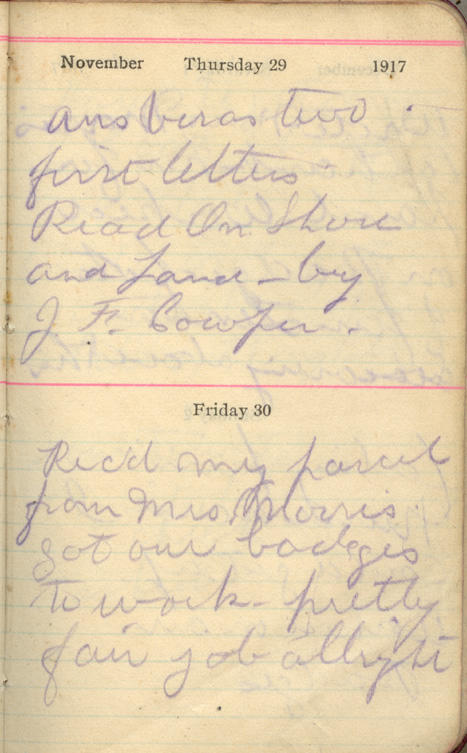 November Thursday 29 1917
two
first letters
Read On Shore
and Land - by
J F. Cowper.
Friday 30
Rec'd my parcel
from Mrs. Morris
got our badges
to work - pretty
fair job allright